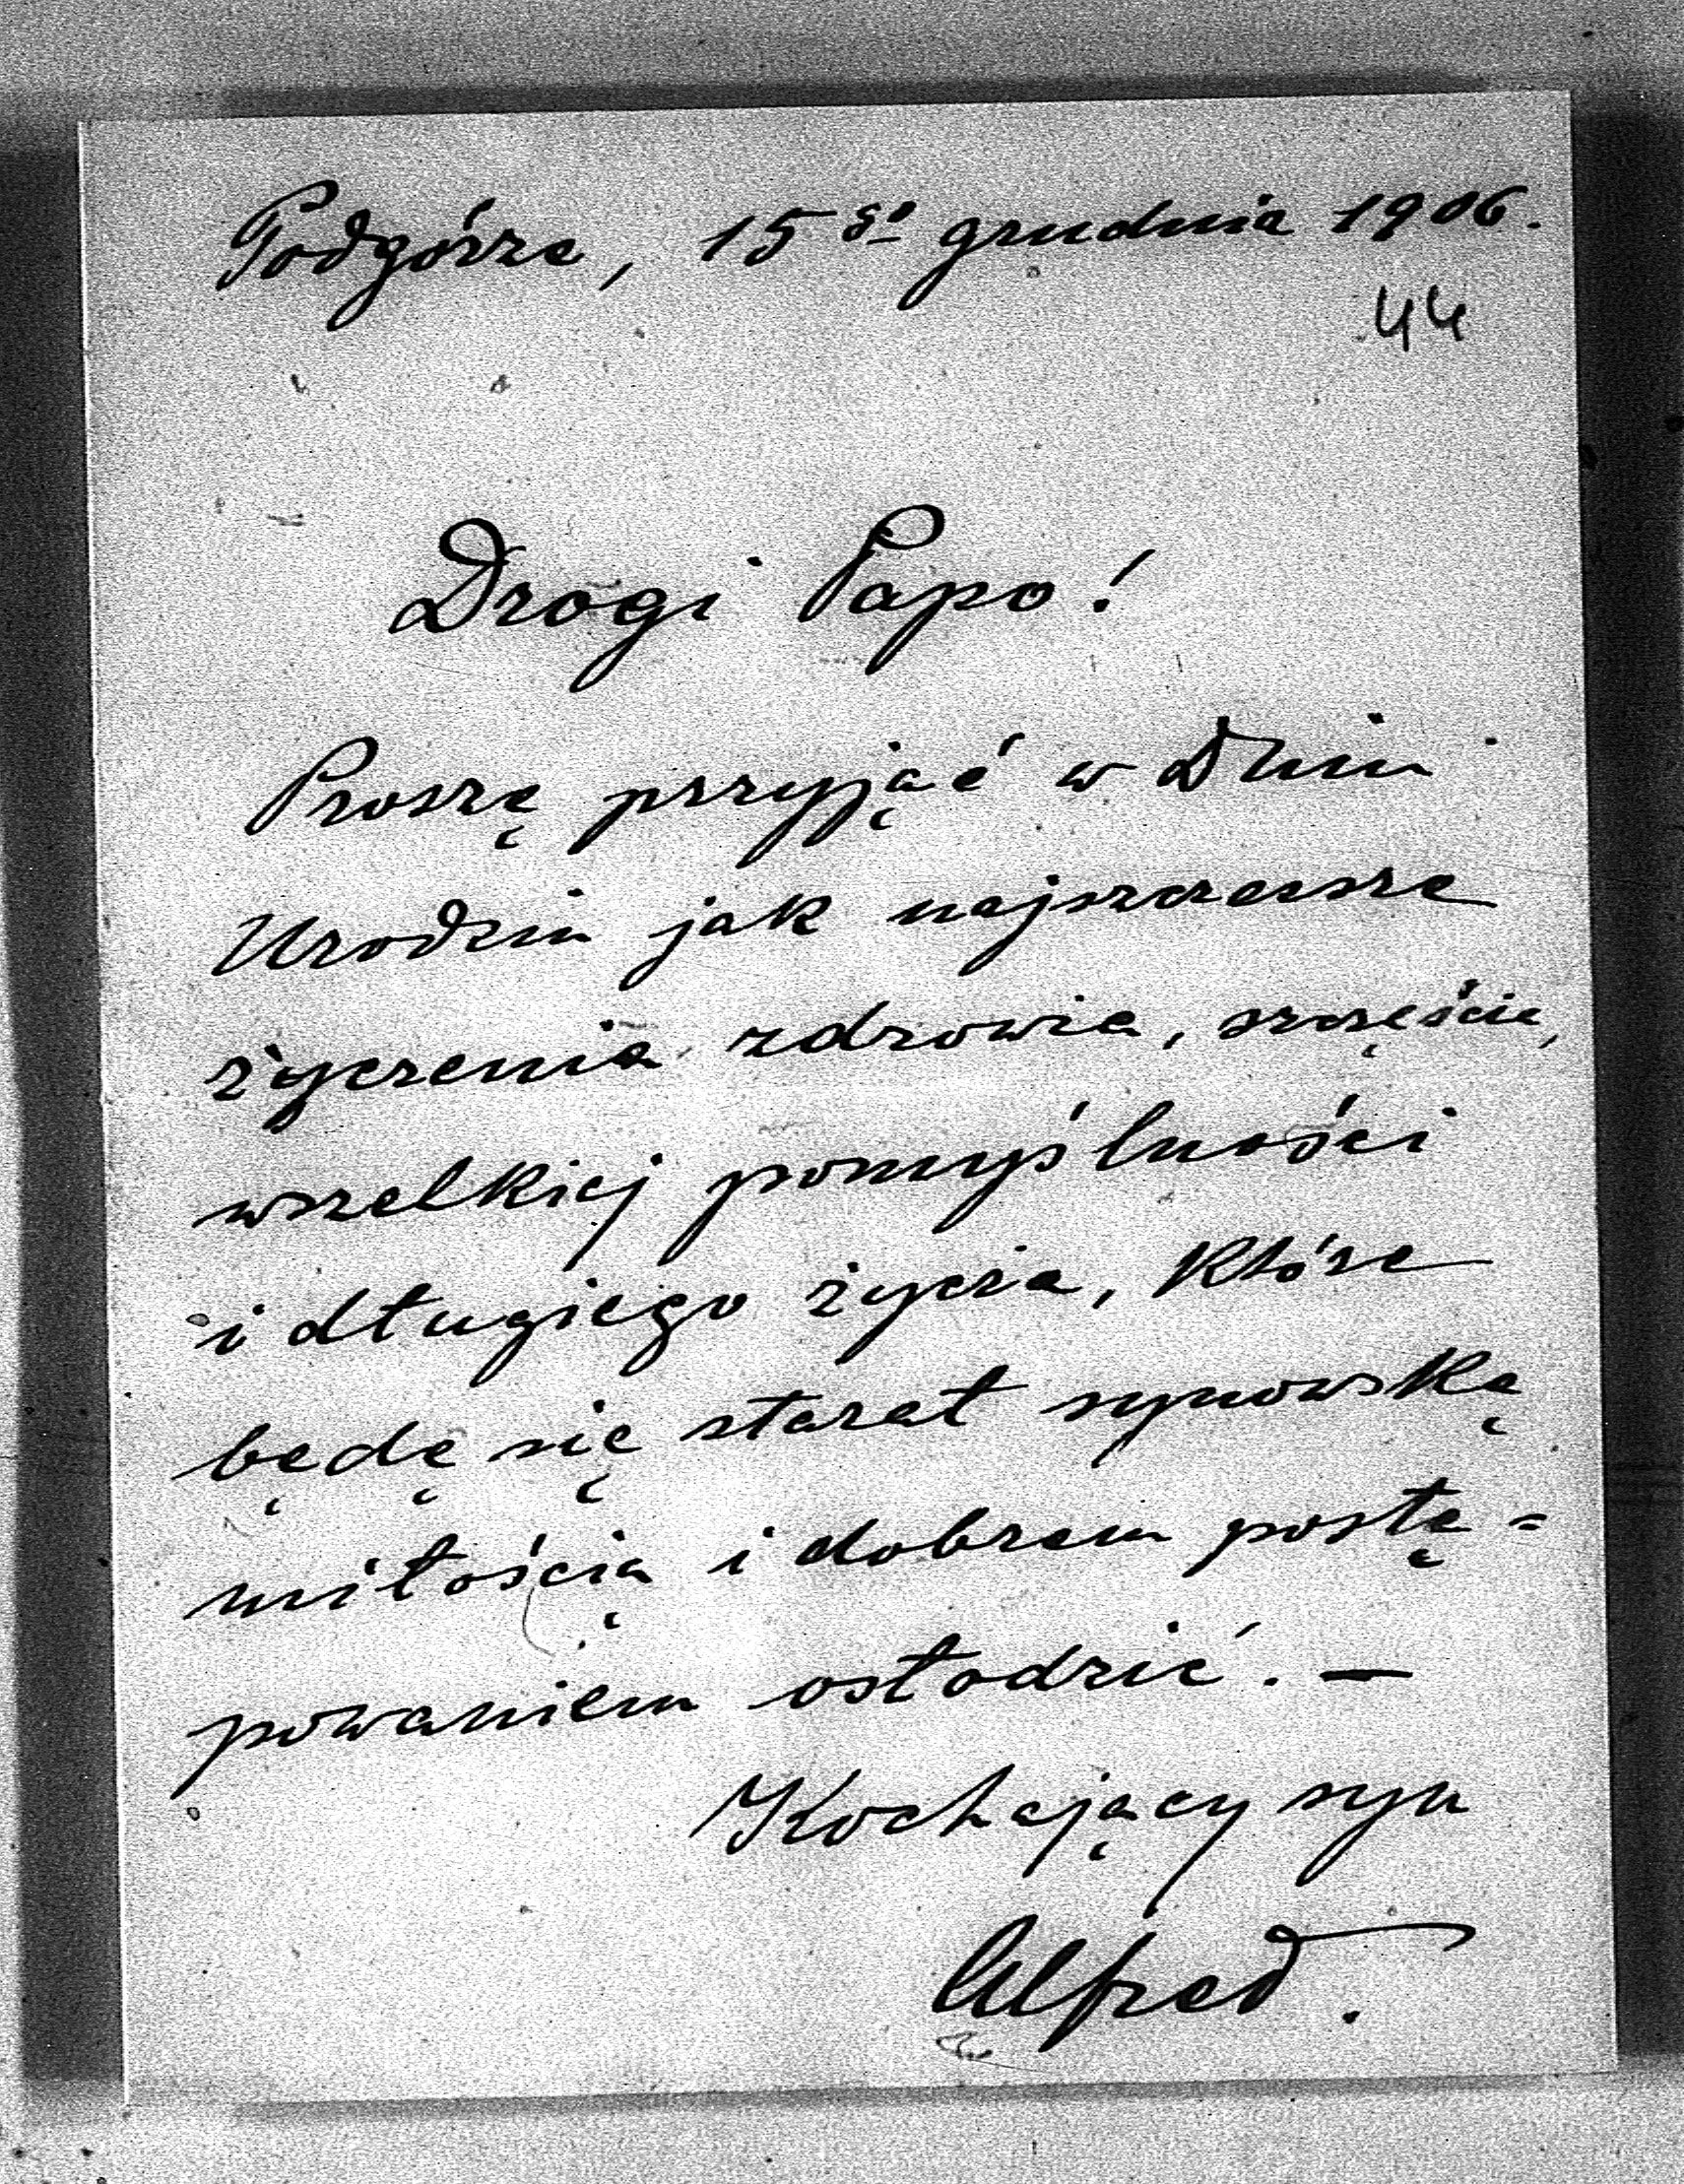 Podgórze, 15go grudnia 1906.
44
Drogi Papo!
Proszę przyjąć w Dniu
Urodzin jak najszczersze
życzenia zdrowia, szczęścia,
wszelkiej pomyślności
i długiego życia, które
będę się starał synowską
miłością i dobrem postę=
powaniem osłodzić. —
Kochający syn
Alfred.